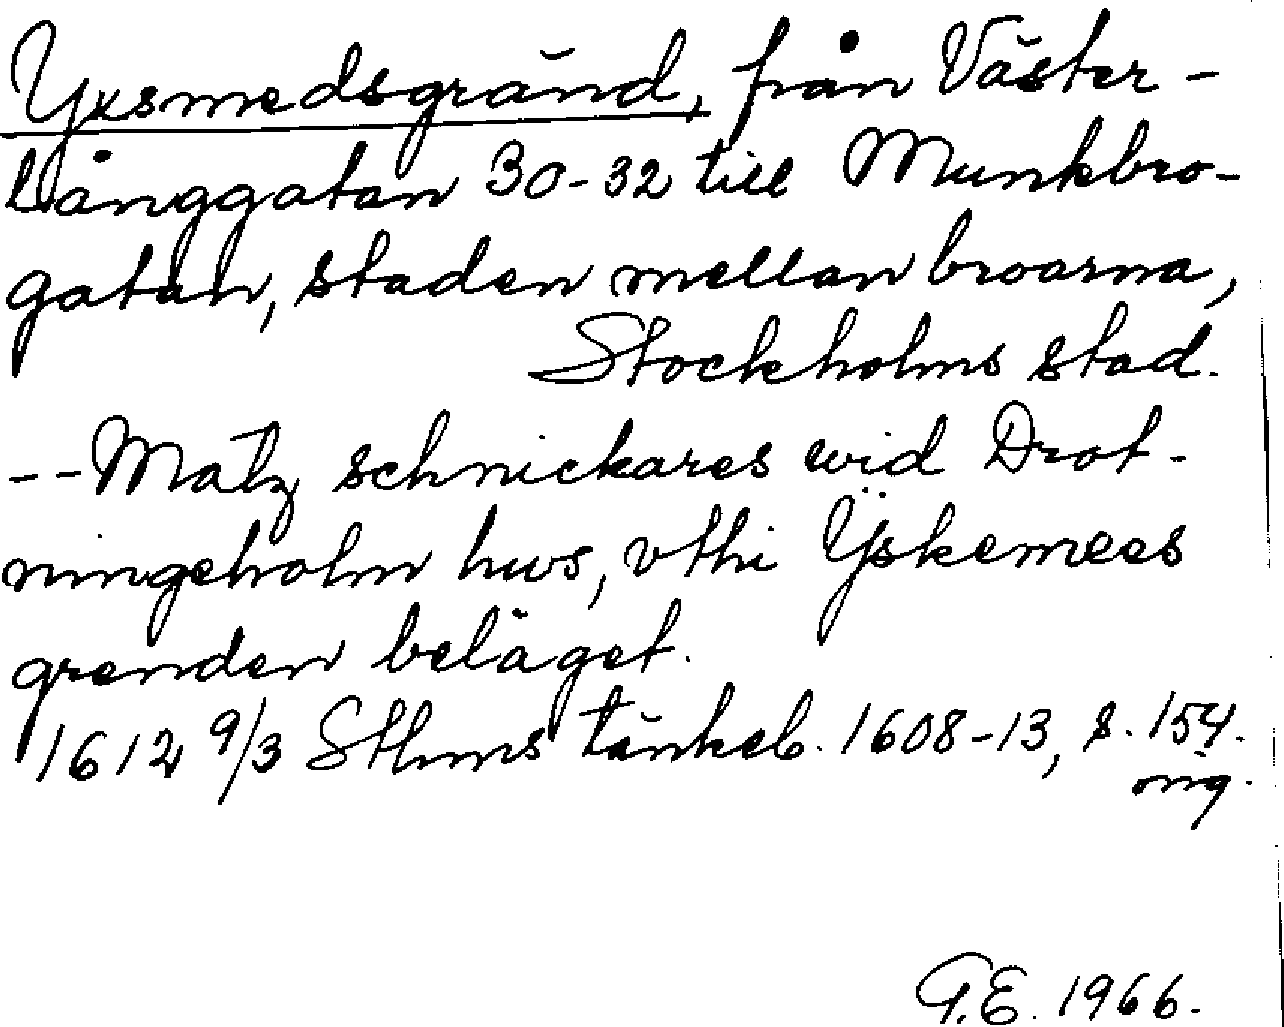 Yxsmedsgränd, från Väster-
långgatan 30-32 till Munkbro-
gatan, staden mellan broarna,
Stockholms stad.
-- Matz schnickares wid Drot-
ningeholm hws, vthi Ÿskemees
grenden beläget.
1612 9/3 Sthms tänkeb. 1608-13, s. 154.
orig.
G.E. 1966.